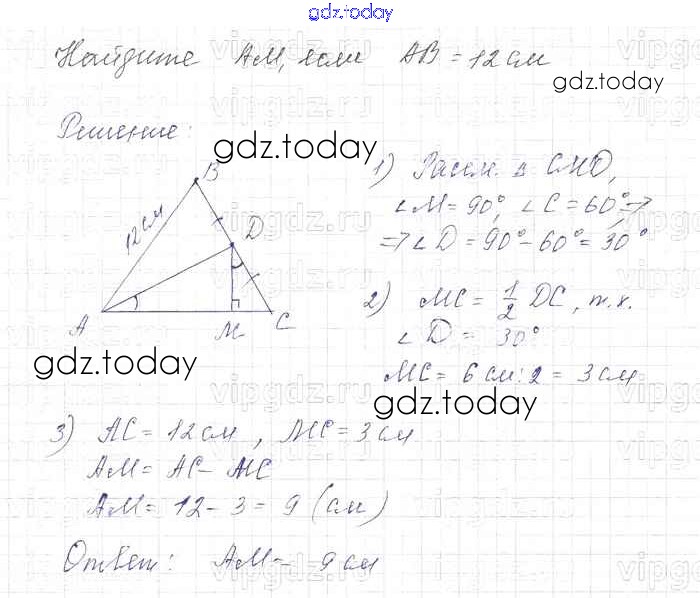 gdz.today
Найдите AM, если AB = 12 см
gdz.today
Решение:
gdz.today
B
12 см
D
A
M
C
1) Рассм. Δ CMD,
∠M = 90°, ∠C = 60° ⇒
⇒ ∠D = 90° − 60° = 30°
2) MC = 1/2 DC, т.к.
∠D = 30°
MC = 6 см : 2 = 3 см
gdz.today
gdz.today
3) AC = 12 см, MC = 3 см
AM = AC − MC
AM = 12 − 3 = 9 (см)
Ответ: AM = 9 см
gdz.today
vipgdz.ru